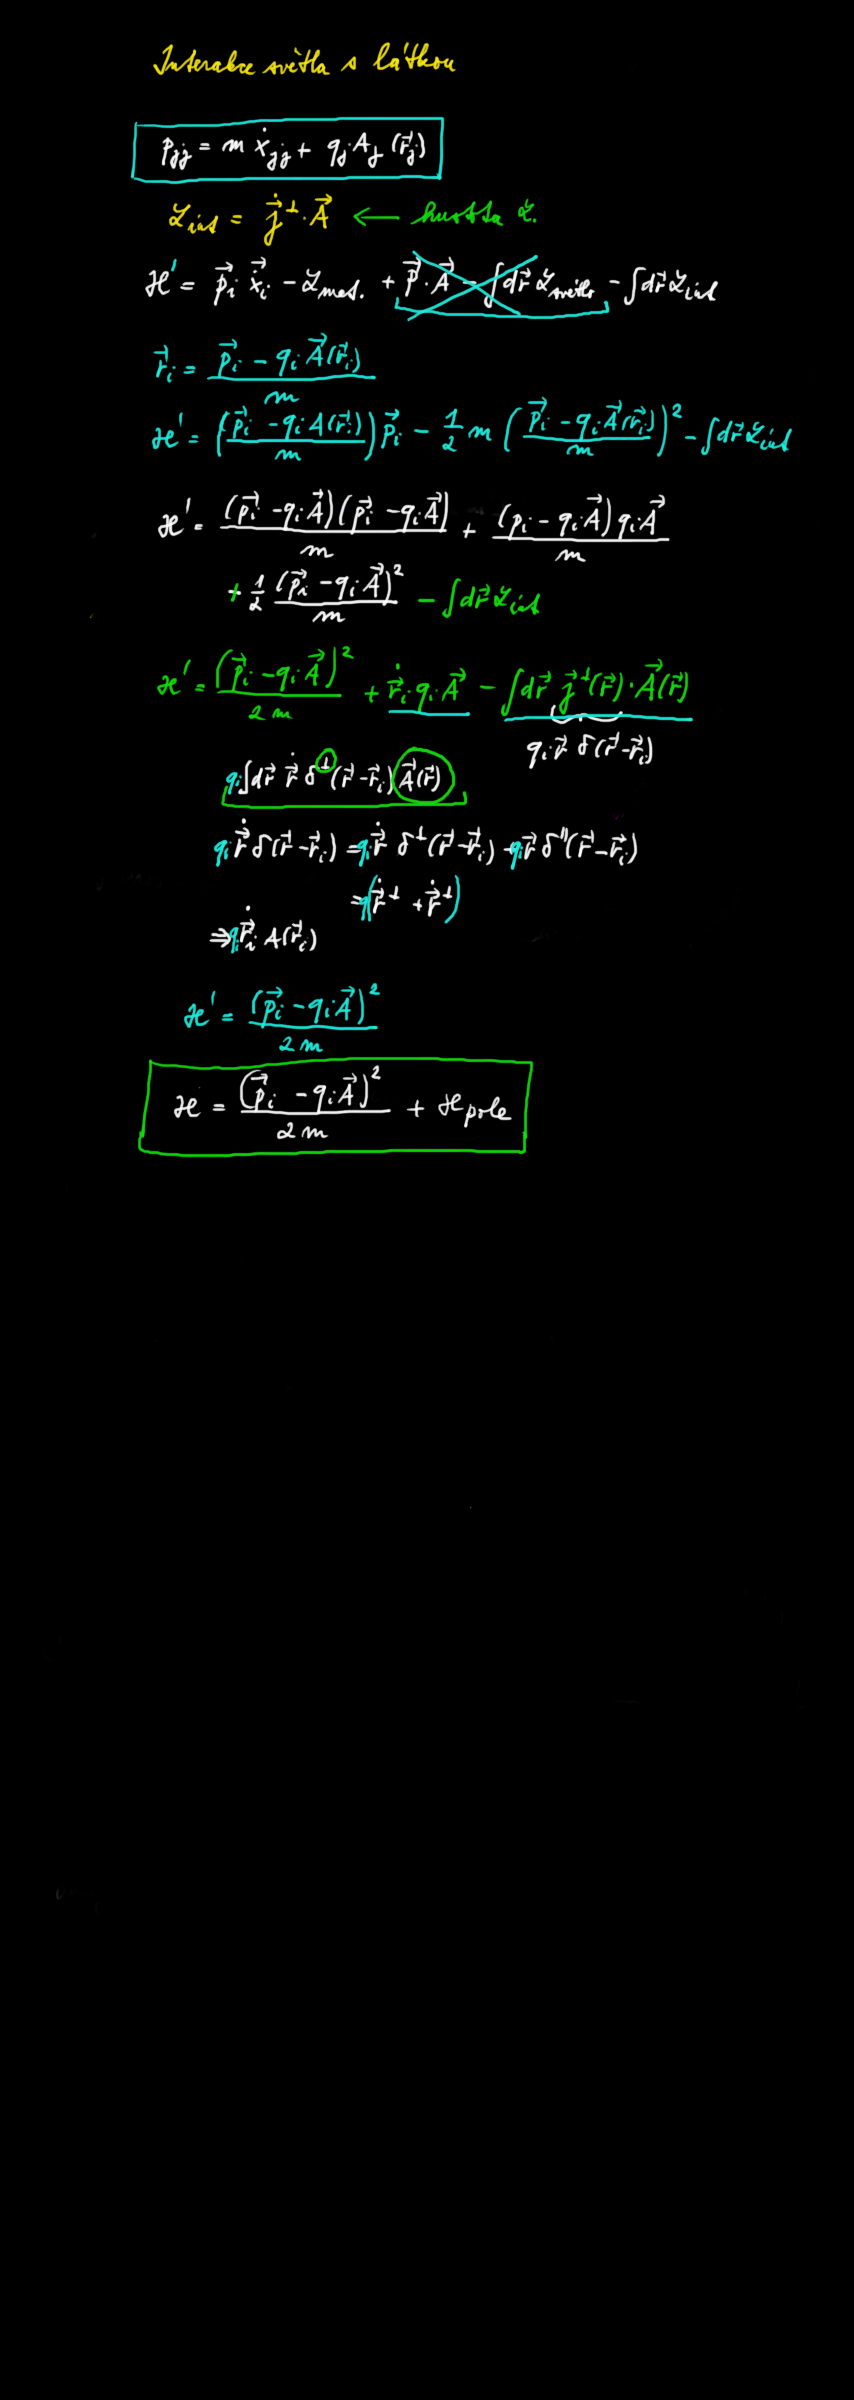 Interakce světla s látkou
p_jj = m ẋ_jj + q_j A_j (r⃗_j)
ℒ_int = j⃗^⊥ · A⃗ ← hustota ℒ.
ℋ' = p⃗_i ẋ⃗_i − ℒ_mat. + P⃗ · A⃗ − ∫dr⃗ ℒ_světlo − ∫dr⃗ ℒ_int
r⃗_i = (p⃗_i − q_i A⃗(r⃗_i)) / m
ℋ' = ((p⃗_i − q_i A(r⃗_i)) / m) p⃗_i − 1/2 m ((p⃗_i − q_i A⃗(r⃗_i)) / m)² − ∫dr⃗ ℒ_int
ℋ' = (p⃗_i − q_i A⃗)(p⃗_i − q_i A⃗) / m + (p_i − q_i A⃗) q_i A⃗ / m
+ 1/2 (p⃗_i − q_i A⃗)² / m − ∫dr⃗ ℒ_int
ℋ' = (p⃗_i − q_i A⃗)² / 2m + ṙ⃗_i q_i A⃗ − ∫dr⃗ j⃗^⊥(r⃗) · A⃗(r⃗)
q_i r⃗ δ(r⃗ − r⃗_i)
q_i ∫dr⃗ ṙ⃗ δ^⊥(r⃗ − r⃗_i) A⃗(r⃗)
q_i ṙ⃗ δ(r⃗ − r⃗_i) = q_i ṙ⃗ δ^⊥(r⃗ − r⃗_i) + q_i r⃗ δ^∥(r⃗ − r⃗_i)
= q(ṙ⃗^⊥ + ṙ⃗^⊥)
⇒ q_i ṙ⃗_i A(r⃗_i)
ℋ' = (p⃗_i − q_i A⃗)² / 2m
ℋ = (p⃗_i − q_i A⃗)² / 2m + ℋ_pole